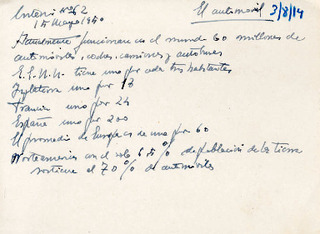 Criterio Nº 262
15 Mayo 1950
El automovil 3/8/14
Actualmente funcionan en el mundo 60 millones de
automóviles, coches, camiones y autobuses
E.E.U.U. tiene uno por cada tres habitantes
Inglaterra uno por 18
Francia uno por 24
España uno por 200
El promedio de Europa es de uno por 60
Norteamerica con el solo 6 % de poblacion de la tierra
sostiene el 70 % de automóviles